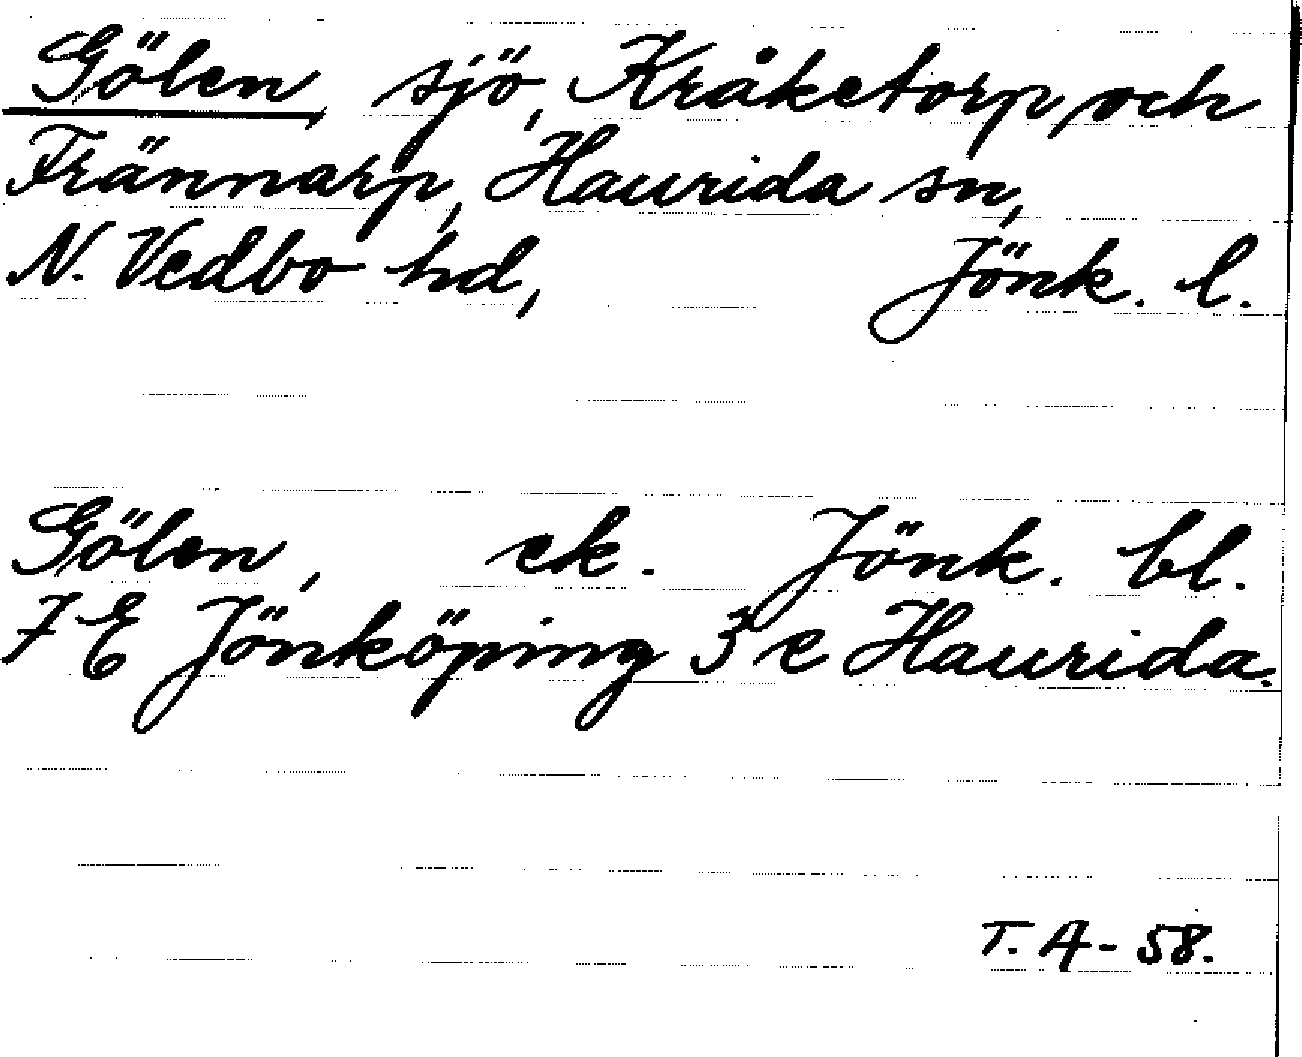 Gölen, sjö, Kråketorp och
Frännarp, Haurida sn,
N. Vedbo hd, Jönk. l.
Gölen, ek. Jönk. bl.
7 E Jönköping 3 e Haurida.
T. A - 58.